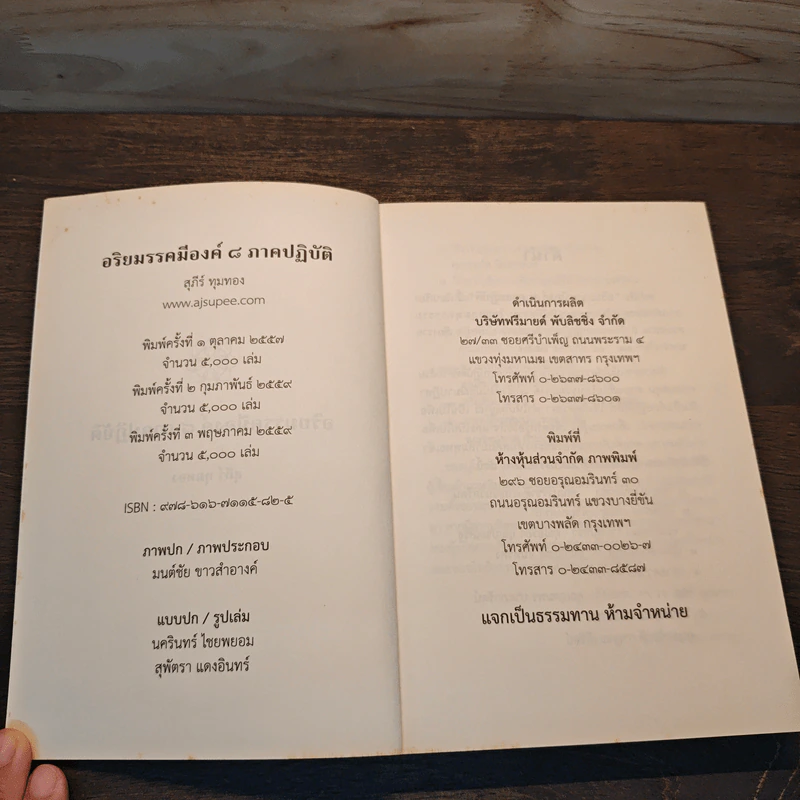 อริยมรรคมีองค์ ๘ ภาคปฏิบัติ
สุภีร์ ทุมทอง
www.ajsupee.com
พิมพ์ครั้งที่ ๑ ตุลาคม ๒๕๕๗
จำนวน ๕,๐๐๐ เล่ม
พิมพ์ครั้งที่ ๒ กุมภาพันธ์ ๒๕๕๙
จำนวน ๕,๐๐๐ เล่ม
พิมพ์ครั้งที่ ๓ พฤษภาคม ๒๕๕๙
จำนวน ๕,๐๐๐ เล่ม
ISBN : ๙๗๘-๖๑๖-๗๑๑๕-๘๒-๕
ภาพปก / ภาพประกอบ
มนต์ชัย ขาวสำอางค์
แบบปก / รูปเล่ม
นครินทร์ ไชยพยอม
สุพัตรา แดงอินทร์
ดำเนินการผลิต
บริษัทฟรีมายด์ พับลิชชิ่ง จำกัด
๒๗/๓๓ ซอยศรีบำเพ็ญ ถนนพระราม ๔
แขวงทุ่งมหาเมฆ เขตสาทร กรุงเทพฯ
โทรศัพท์ ๐-๒๖๓๗-๘๖๐๐
โทรสาร ๐-๒๖๓๗-๘๖๐๑
พิมพ์ที่
ห้างหุ้นส่วนจำกัด ภาพพิมพ์
๒๙๖ ซอยอรุณอมรินทร์ ๓๐
ถนนอรุณอมรินทร์ แขวงบางยี่ขัน
เขตบางพลัด กรุงเทพฯ
โทรศัพท์ ๐-๒๔๓๓-๐๐๒๖-๗
โทรสาร ๐-๒๔๓๓-๘๕๘๗
แจกเป็นธรรมทาน ห้ามจำหน่าย